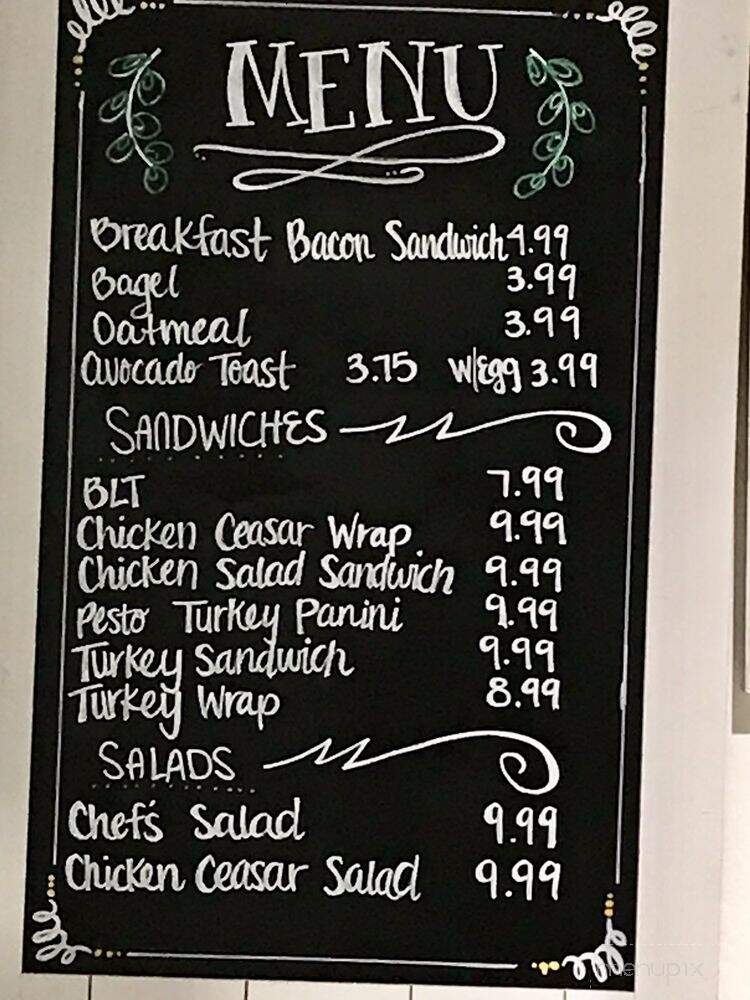 MENU
Breakfast Bacon Sandwich 4.99
Bagel 3.99
Oatmeal 3.99
Avocado Toast 3.75 W/Egg 3.99
SANDWICHES
BLT 7.99
Chicken Ceasar Wrap 9.99
Chicken Salad Sandwich 9.99
Pesto Turkey Panini 9.99
Turkey Sandwich 9.99
Turkey Wrap 8.99
SALADS
Chef's Salad 9.99
Chicken Ceasar Salad 9.99
menupix